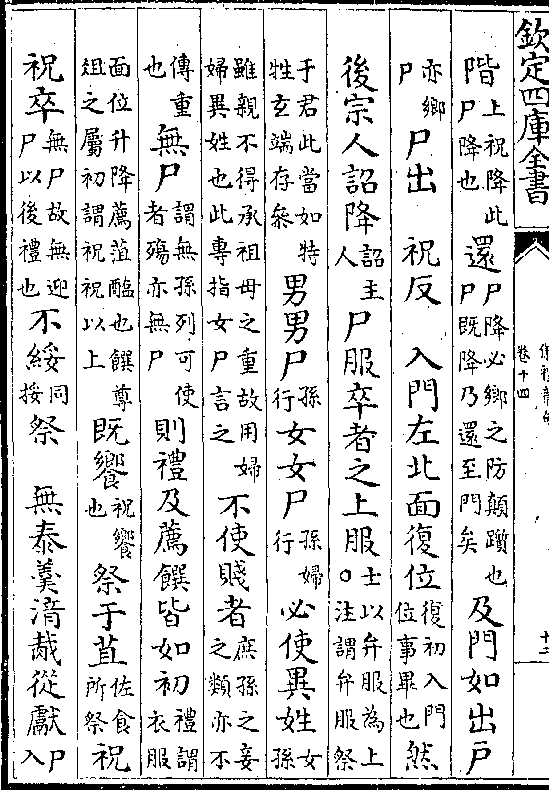 欽定四庫全書
卷十四
十二
階上祝降此尸降也還尸降必鄉之防顛蹟也尸既降乃還至門矣及門如出戶
亦鄉尸尸出　祝反　入門左北面復位復初入門位事畢也然
後宗人詔降詔主人尸服卒者之上服士以弁服為上○注謂弁服祭
于君此當如特牲玄端存參男男尸孫行女女尸孫婦行必使異姓女孫
雖親不得承祖母之重故用婦婦異姓也此專指女尸言之不使賤者庶孫之妾之類亦不
傳重也無尸謂無孫列可使者殤亦無尸則禮及薦饌皆如初禮謂衣服
面位升降薦菹醢也饌尊俎之屬初謂祝祝以上既饗祝饗也祭于苴佐食所祭祝
祝卒無尸故無迎尸以後禮也不綏同挼祭　無泰羹湆胾從獻尸入